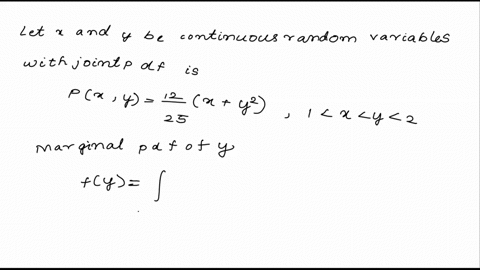 Let x and y be continuous random variables
with joint pdf is
P(x, y) = 12/25 (x + y²) , 1 < x < y < 2
marginal pdf of y
f(y) = ∫